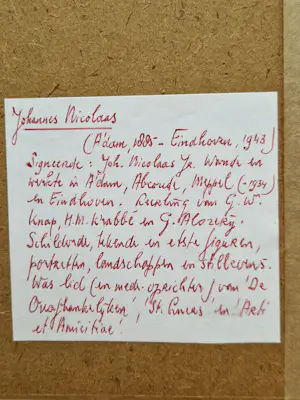 Johannes Nicolaas
(A'dam, 1885 - Eindhoven, 1943)
Signeerde: Joh. Nicolaas Jr. Woonde en
werkte in A'dam, Abcoude, Meppel (-1934)
en Eindhoven. Leerling van G.W.
Knap, H.M. Krabbé en G.
Schilderde, tekende en etste figuren,
portretten, landschappen en stillevens.
Was lid (en mede-oprichter) van 'De
Onafhankelijken', 'St. Lucas' en 'Arti
et Amicitiae'.